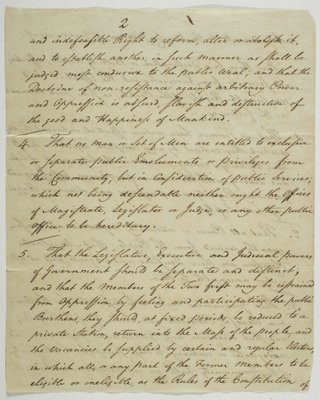 2
and indefeasible Right to reform, alter or abolish it,
and to establish another, in such manner as shall be
judged most conducive to the public Weal; and that the
Doctrine of non-resistance against arbitrary Power
and Oppression is absurd, slavish and destructive of
the good and Happiness of Mankind.
4. That no man or Set of Men are entitled to exclusive
or separate public Emoluments or Privileges from
the Community, but in Consideration of public Services;
which not being descendable neither ought the Offices
of Magistrate, Legislator or Judge, or any other public
Office to be hereditary.
5. That the Legislative, Executive and Judicial powers
of Government should be separate and distinct;
and that the Members of the Two first may be restrained
from Oppression by feeling and participating the public
Burthens, they should, at fixed periods be reduced to a
private Station, return into the Mass of the people, and
the Vacancies be supplied by certain and regular Elections,
in which all, or any part of the Former Members to be
eligible or ineligible, as the Rules of the Constitution of